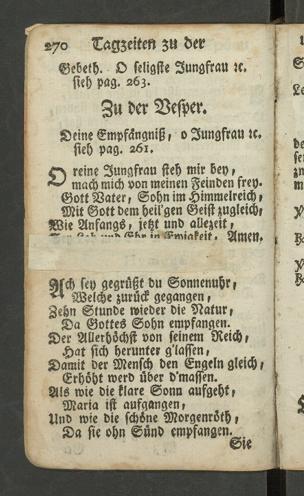 270 Tagzeiten zu der
Gebeth. O seligste Jungfrau ꝛc.
sieh pag. 263.
Zu der Vesper.
Deine Empfängniß, o Jungfrau ꝛc.
sieh pag. 261.
O reine Jungfrau steh mir bey,
mach mich von meinen Feinden frey.
Gott Vater, Sohn im Himmelreich,
Mit Gott dem heil'gen Geist zugleich,
Wie Anfangs, jetzt und allezeit,
und Ehr in Ewigkeit. Amen.
Ach sey gegrüßt du Sonnenuhr,
Welche zurück gegangen,
Zehn Stunde wieder die Natur,
Da Gottes Sohn empfangen.
Der Allerhöchst von seinem Reich,
Hat sich herunter g'lassen,
Damit der Mensch den Engeln gleich,
Erhöht werd über d'massen.
Als wie die klare Sonn aufgeht,
Maria ist aufgangen,
Und wie die schöne Morgenröth,
Da sie ohn Sünd empfangen.
Sie